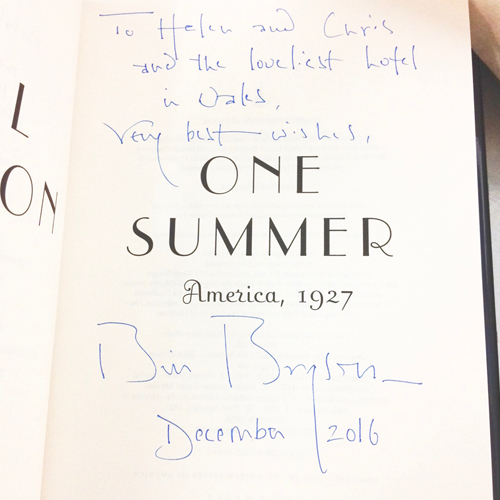 To Helen and Chris
and the loveliest hotel
in Wales,
Very best wishes,
L
ON
ONE
SUMMER
America, 1927
Bill Bryson
December 2016